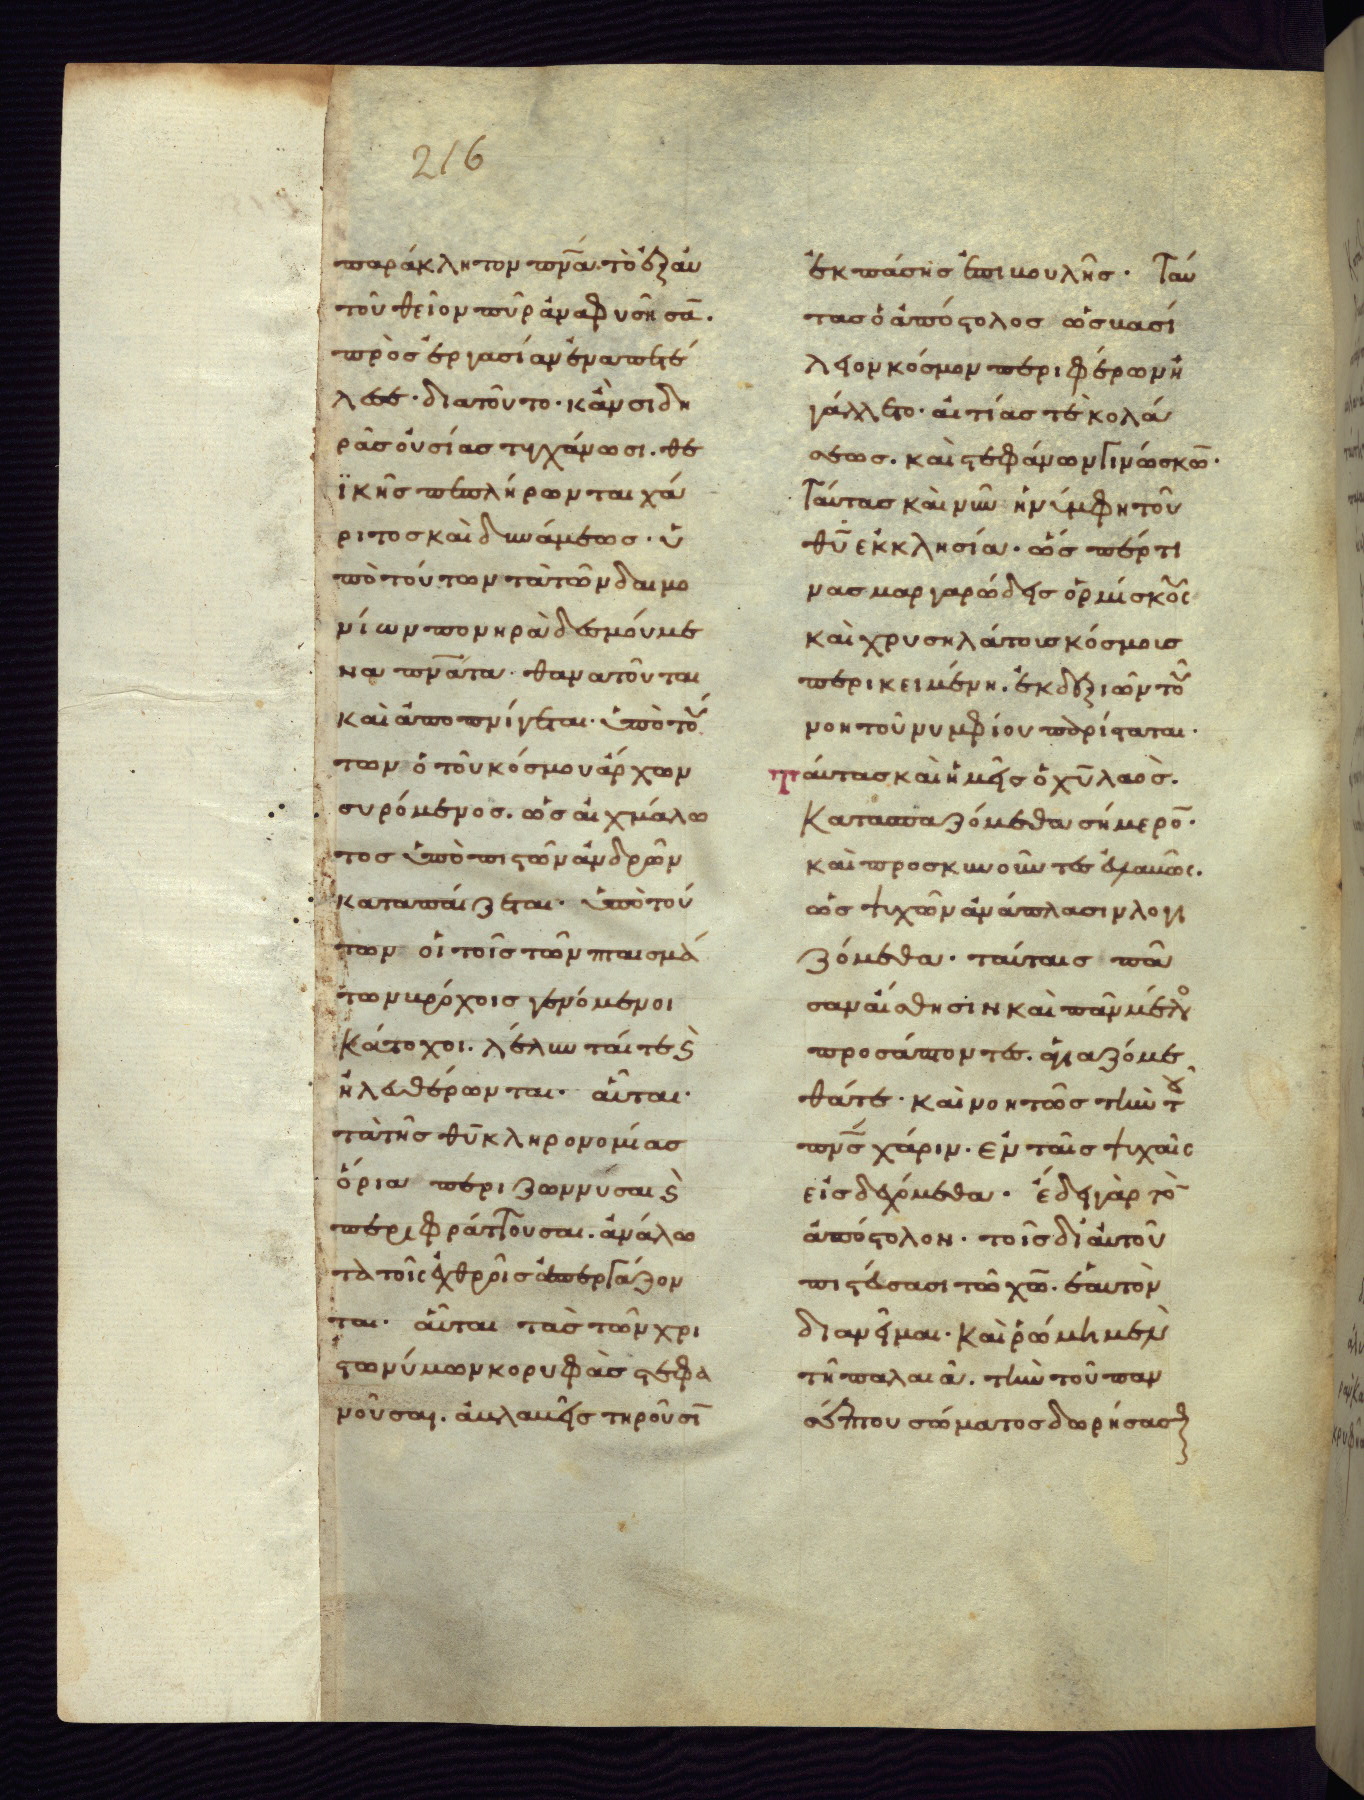 216
παράκλητον πν̅α. τὸ ἐξ αυ
τοῦ θεῖον πῦρ ἀναφυσῆσα̅.
πρὸς ἐργασίαν ἐναπετέ
λεσε· διατοῦτο· κἂν σιδη
ρᾶς οὐσίας τυχάνωσι. θε
ϊκῆς πεπλήρωνται χά
ριτος καὶ δυνάμεως· ὑ
πὸ τούτων τὰ τῶν δαιμο
νίων πονηρὰ δεσμούμε
να πν̅ατα· θανατοῦνται
καὶ ἀποπνίγεται· ὑπὸ τού
των ὁ τοῦ κόσμου ἄρχων
συρόμενος. ὡς αἰχμάλω
τος ὑπὸ πιστῶν ἀνδρῶν
καταπαίζεται· ὑπὸ τού
των οἱ τοῖς τῶν πταισμά
των βρόχοις γενόμενοι
κάτοχοι. λέλυνταί τε ϛ̀
ἠλευθέρωνται· αὗται·
τὰ τῆς θυ̅ κληρονομίας
ὅρια περιζωννῦσαι ϛ̀
περιφράττουσαι. ἀνάλω
τα τοῖς ἐχθροῖς ἀπεργάζον
ται· αὗται τὰς τῶν χρι
στωνύμων κορυφὰς στεφα
νοῦσαι. ἀβλαβεῖς τηροῦσι̅
ἐκ πάσης ἐπιβουλῆς· Ταύ
τας ὁ ἀπόστολος ὡς βασί
λειον κόσμον περιφέρων ἠ
γάλλετο· αἰτίας τὲ κολά
σεως. καὶ στεφάνων γινώσκω̅·
Ταύτας καὶ νῦν ἡ νύμφη τοῦ
θυ̅ ἐκκλησία· ὥσπέρ τι
νας μαργαρώδεις ὁρμίσκους
καὶ χρυσηλάτοις κόσμοις
περικειμένη. ἐκ δεξιῶν τοῦ
νοητοῦ νυμφίου παρίσταται·
Ταύτας καὶ ἡμεῖς ὁ χυ̅ λαὸς.
Κατασπαζόμεθα σήμερο̅·
καὶ προσκυνοῦντες εὐλαβῶς.
ὡς ψυχῶν ἀνάπλασιν λογι
ζόμεθα· ταύταις πᾶ
σαν αἴσθησιν καὶ πᾶν μέλος
προσάπτοντες. ἁγιαζόμε
θά τε· καὶ νοητῶς τὴν τοῦ
πν̅ς χάριν· ἐν ταῖς ψυχαῖς
εἰσδεχόμεθα· ἔδει γὰρ τὸ̅
ἀπόστολον· τοῖς δι' αὐτοῦ
πιστεύσασι τῶ χω̅. ἑαυτὸν
διανεῖμαι· Καὶ ῥώμῃ μὲν
τῆ παλαιᾶ. τὴν τοῦ παν
σέπτου σώματος δωρήσασθ